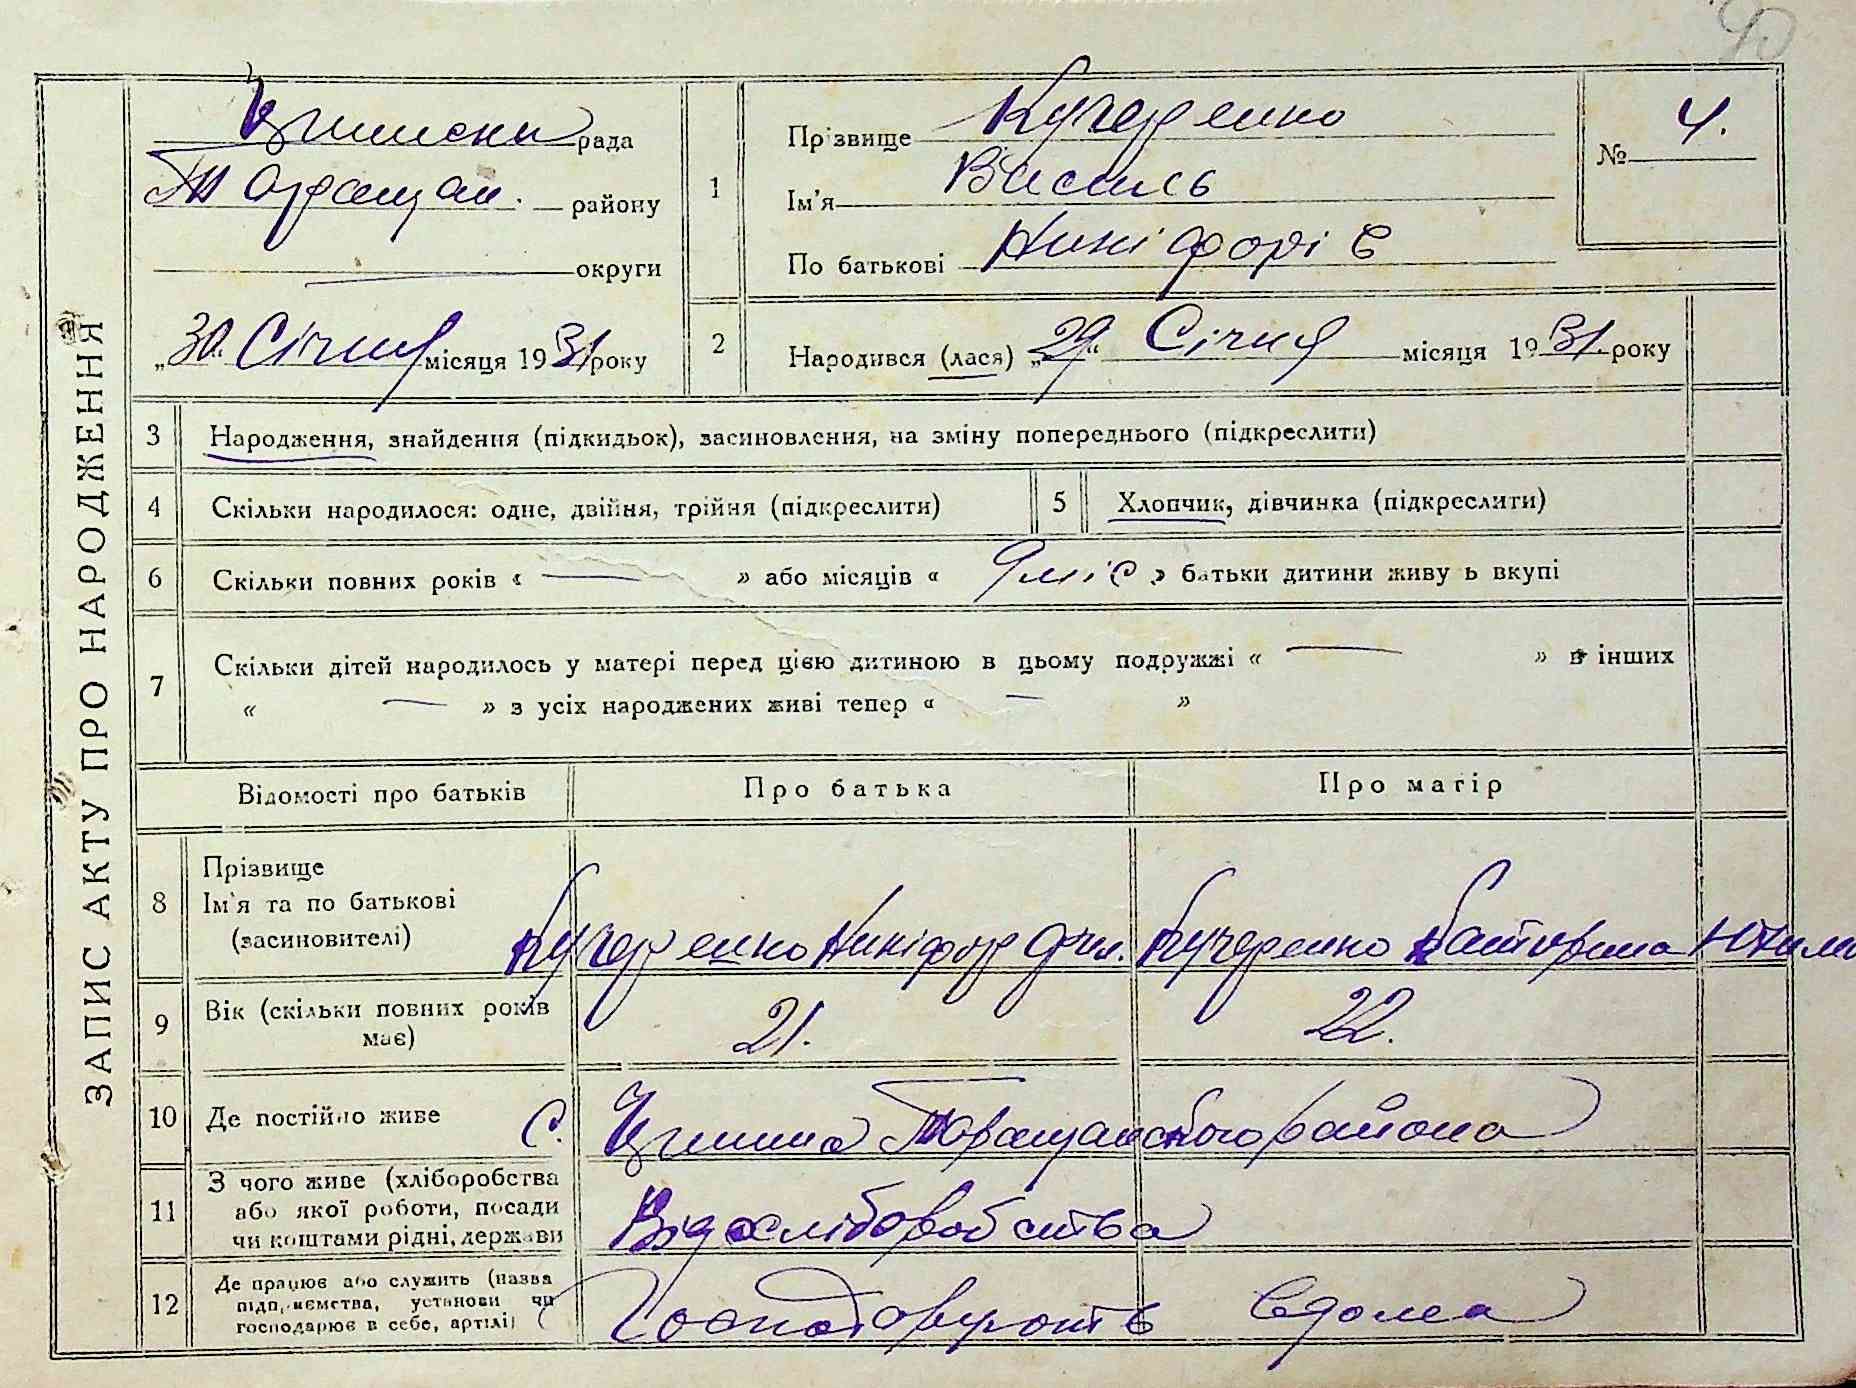 ЗАПИС АКТУ ПРО НАРОДЖЕННЯ
рада
Таращан. району
округи
„30“ Січня місяця 1931 року
1
Прізвище Кучеренко
Ім'я Василь
По батькові Никіфорів
№ 4.
2
Народився (лася) „29“ Січня місяця 1931 року
3 Народження, знайдення (підкидьок), засиновлення, на зміну попереднього (підкреслити)
4 Скільки народилося: одне, двійня, трійня (підкреслити)
5 Хлопчик, дівчинка (підкреслити)
6 Скільки повних років « — » або місяців « 9 міс » батьки дитини живу ь вкупі
7 Скільки дітей народилось у матері перед цією дитиною в цьому подружжі « — » в інших
« — » з усіх народжених живі тепер « — »
Відомості про батьків Про батька Про матір
8 Прізвище
Ім'я та по батькові
(засиновителі)
Кучеренко Никіфор Кучеренко Катерина
9 Вік (скільки повних років
має)
21. 22.
10 Де постійно живе с. Таращанского района
11 З чого живе (хліборобства
або якої роботи, посади
чи коштами рідні, держави
Від хліборобства
12 Де працює або служить (назва
підприємства, установи чи
господарює в себе, артілі)
Господарують вдома